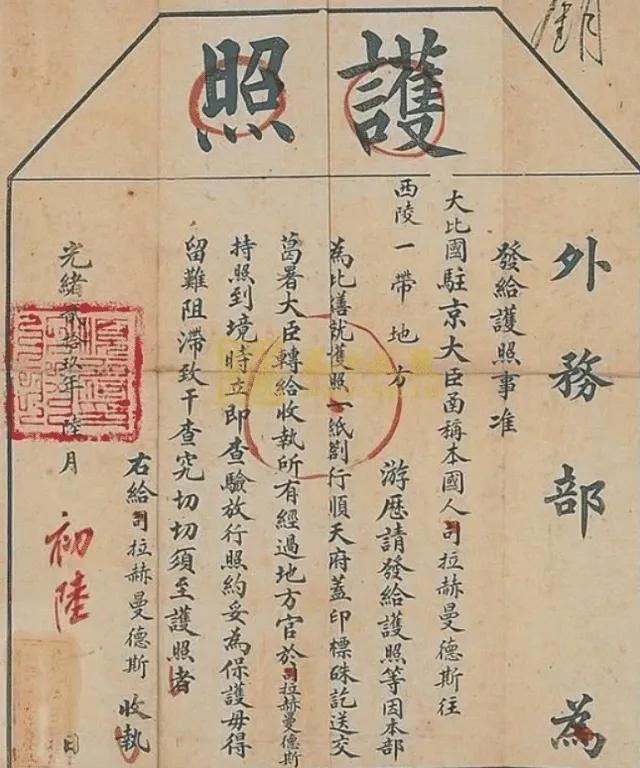 護照
外務部為
發給護照事准
大比國駐京大臣函稱本國人司拉赫曼德斯往
西陵一帶地方游歷請發給護照等因本部
為此繕就護照一紙劄行順天府蓋印標硃訖送交
葛署大臣轉給收執所有經過地方官於司拉赫曼德斯
持照到境時立即查驗放行照約妥為保護毋得
留難阻滯致干查究切切須至護照者
右給司拉赫曼德斯收執
光緒貳拾玖年陸月初陸日